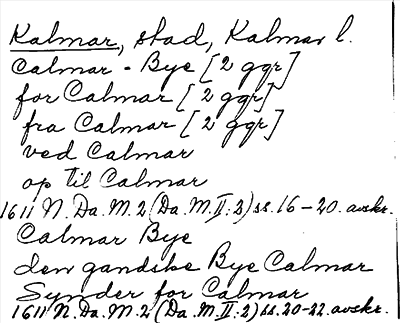 Kalmar, stad, Kalmar l.
Calmar - Bye [2 ggr]
for Calmar [2 ggr]
fra Calmar [2 ggr]
ved Calmar
op til Calmar
1611 N. Da. M. 2 (Da. M. II: 2) ss. 16-20. avskr.
Calmar Bye
den gandske Bye Calmar
Synder for Calmar
1611 N. Da. M. 2 (Da. M. II: 2) ss. 20-22. avskr.